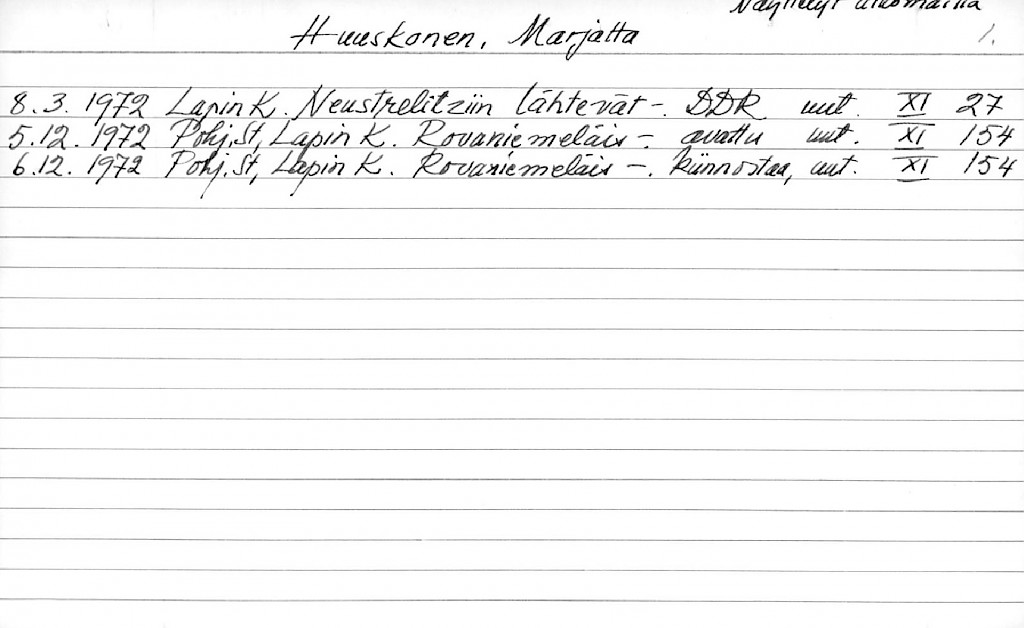 Näyttelyt ulkomailla
Huuskonen, Marjatta 1.
8.3. 1972 Lapin K. Neustrelitziin lähtevät -. DDR uut. XI 27
5.12. 1972 Pohj.St, Lapin K. Rovaniemeläis -. avattu uut. XI 154
6.12. 1972 Pohj.St, Lapin K. Rovaniemeläis -. kiinnostaa, uut. XI 154